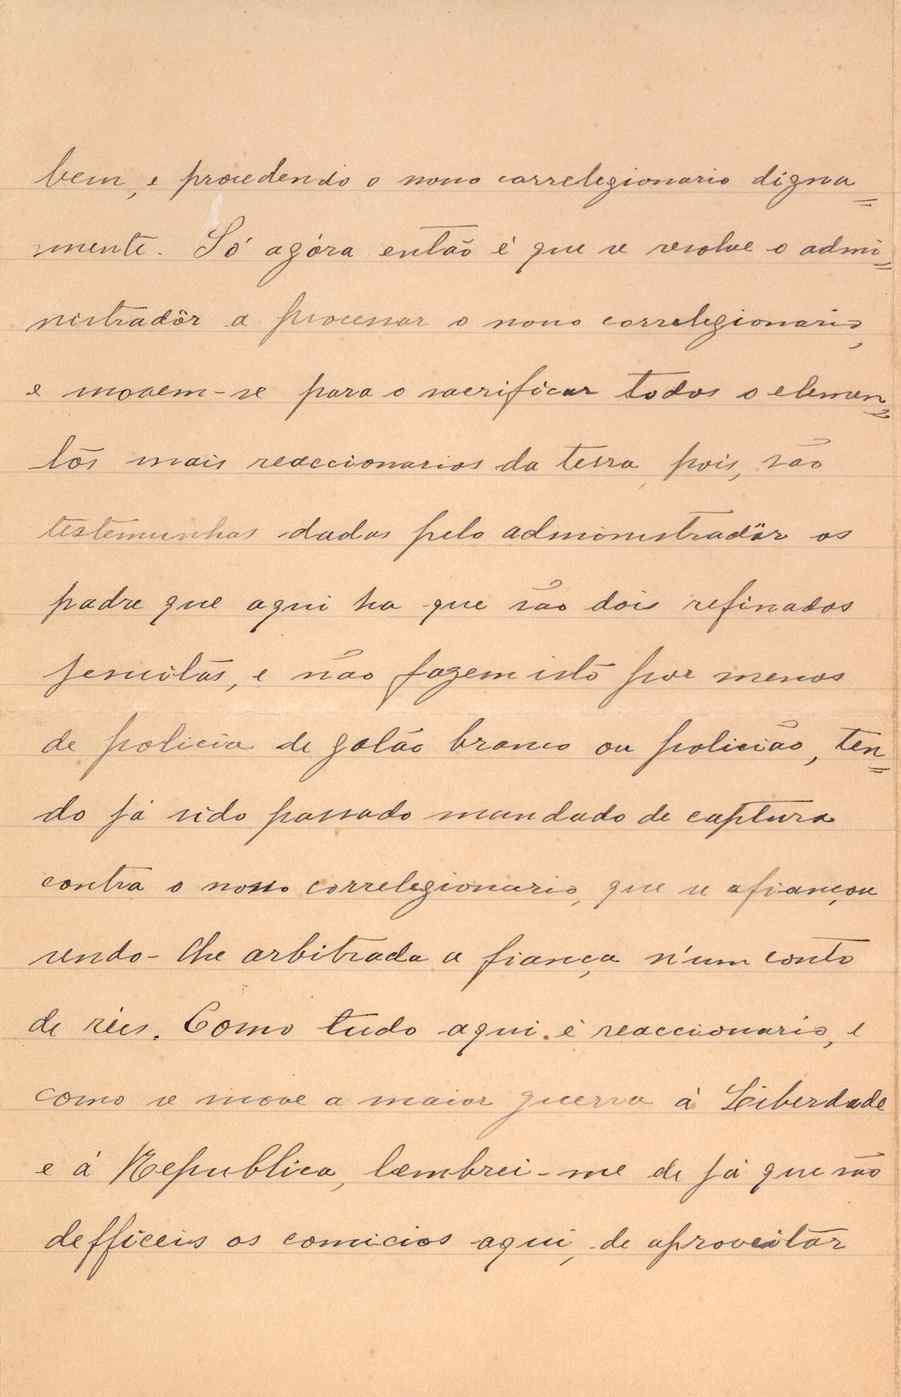 bem, e procedendo o nosso correlegionario digna=
mente. Só agóra então é que se resolve o admi=
nistradôr a processar o nosso correlegionario,
e movem-se para o sacrificar todos o elemen=
tôs mais reaccionarios da terra, pois, são
testemunhas dadas pelo administradôr os
padre que aqui ha que são dois refinados
jesuitâs, e não fazem isto por menos
de policia de galão branco ou policião, ten=
do já sido passado mandado de captura
contra o nosso correlegionario, que se afiançou
sendo-lhe arbitrada a fiança n'um conto
de réis. Como tudo aqui é reaccionario, e
como se move a maior guerra á Leiberdade
e á Republica, lembrei-me de já que são
defficeis os comicios aqui, de aproveitar